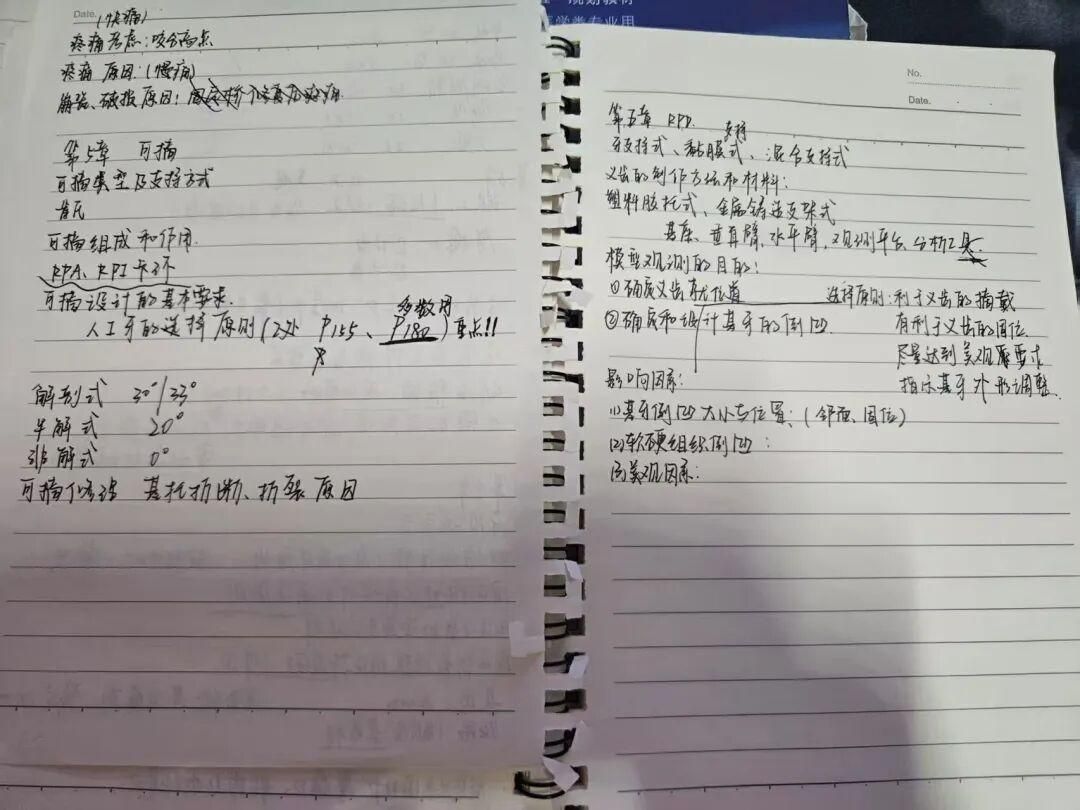 Date.
(快痛)
疼痛考虑:咬合高点
疼痛原因:(慢痛)
崩瓷、破损原因:
第5章 可摘
可摘类型及支持方式
肯氏
可摘组成和作用.
RPA、RPI卡环
可摘设计的基本要求.
人工牙的选择原则(2处 P155、P180)重点!!
多数用
解剖式 30°/33°
半解式 20°
非解式 0°
可摘修理 基托折断、折裂原因
规划教材
医学类专业用
No.
Date.
第五章 RPD.
支持
牙支持式、黏膜式、混合支持式
义齿的制作方法和材料:
塑料胶托式、金属铸造支架式
基座、垂直臂、水平臂、观测平台、分析工具.
模型观测的目的:
①确定义齿就位道 选择原则:利于义齿的摘戴
②确定和设计基牙的倒凹 有利于义齿的固位.
尽量达到美观要求
影响因素: 指示基牙外形调整.
(1)基牙倒凹大小与位置:(邻面、固位)
(2)软硬组织倒凹:
(3)美观因素: